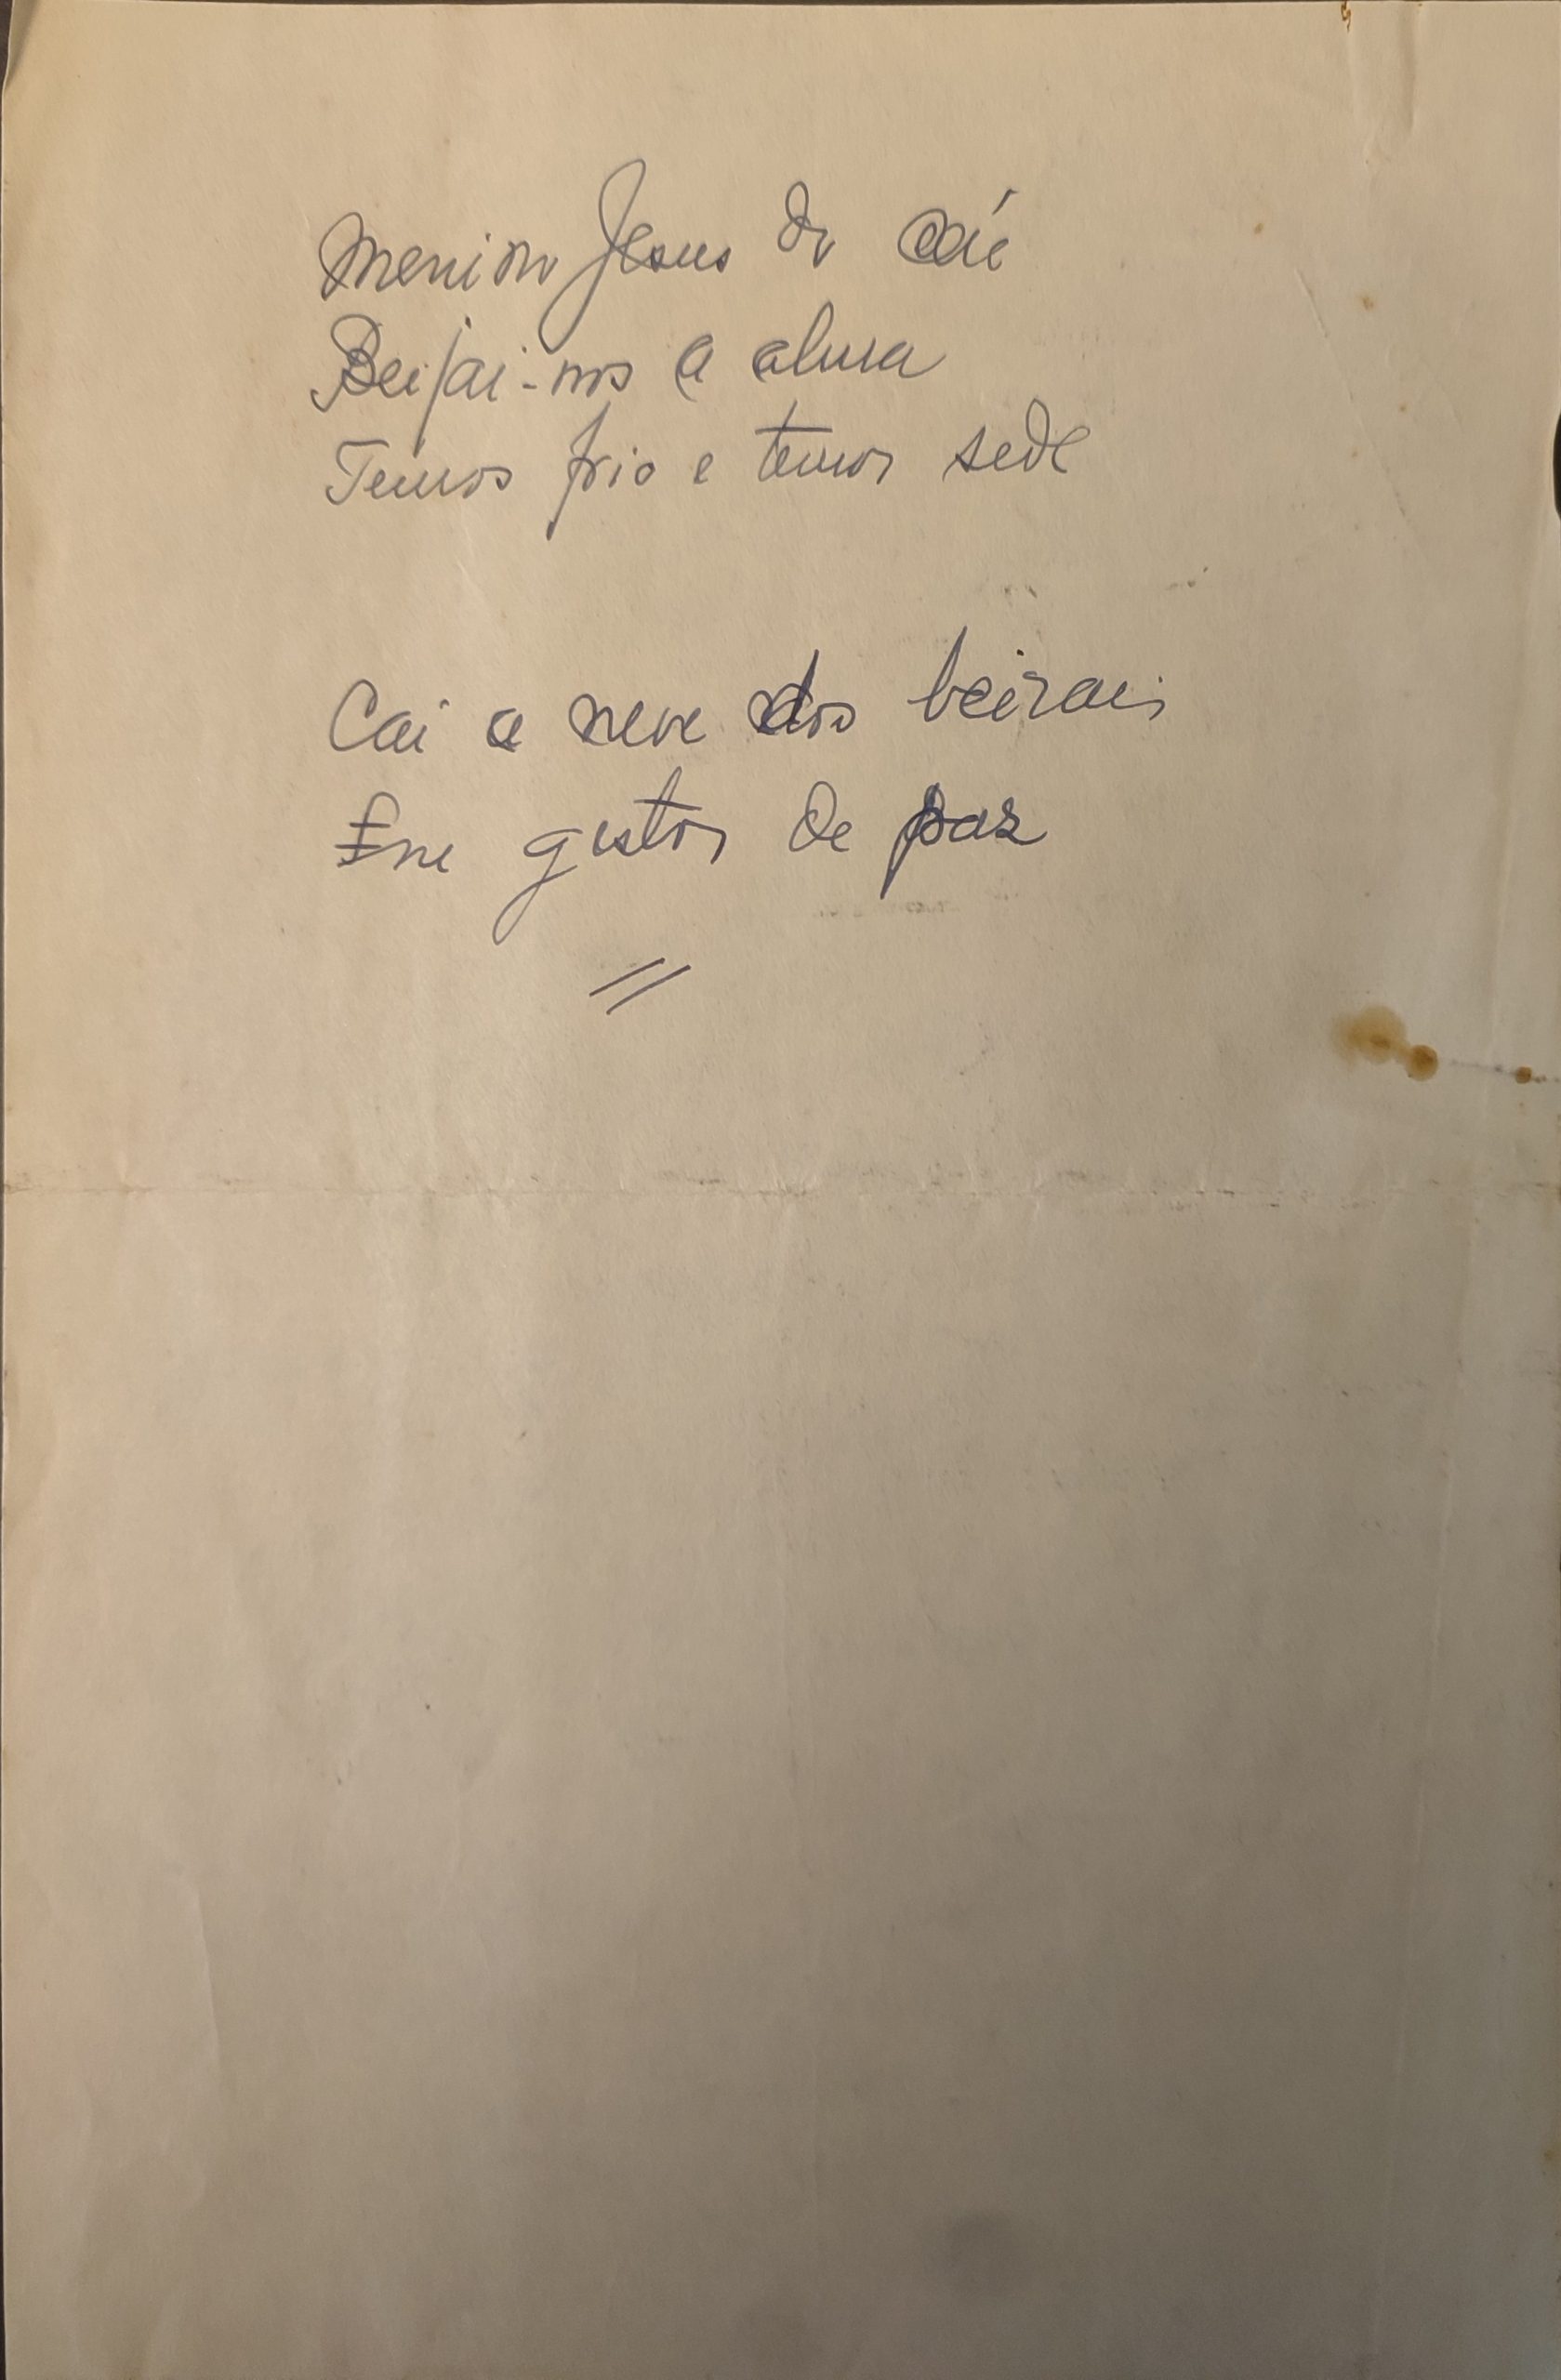 Menino Jesus do céu
Beijai-nos a alma
Temos frio e temos sede
Cai a neve dos beirais
Em gestos de paz